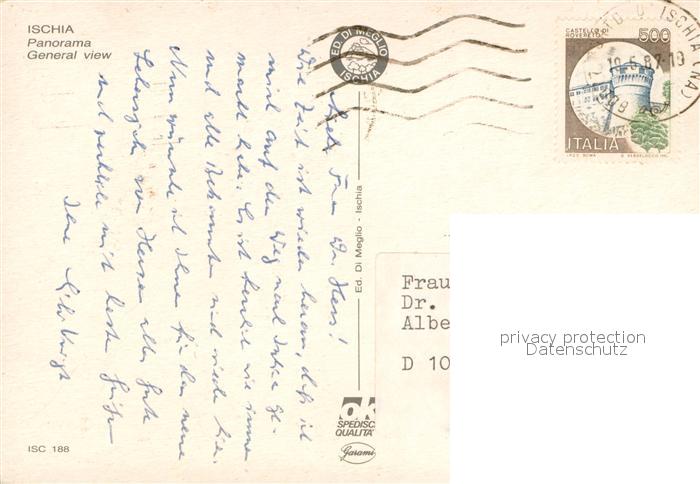 ISCHIA
Panorama
General view
Liebe Frau Dr. Hess!
Die Zeit ist wieder heran, daß ich
mich auf den Weg nach Ischia ge-
macht habe. Es ist herrlich wie immer
und alle Bekannten sind wieder hier.
Nun wünsche ich Ihnen für das neue
Lebensjahr von Herzen alles Gute
und verbleibe mit besten Grüßen
Ihre
ISC 188
ED. DI MEGLIO
ISCHIA
Ed. Di Meglio - Ischia
ok
SPEDISCI
QUALITA'
Garami
CASTELLO DI
ROVERETO
500
ITALIA
I.P.Z.S. ROMA
PORTO D'ISCHIA (NA)
Frau
Dr.
Albe
D 10
privacy protection
Datenschutz